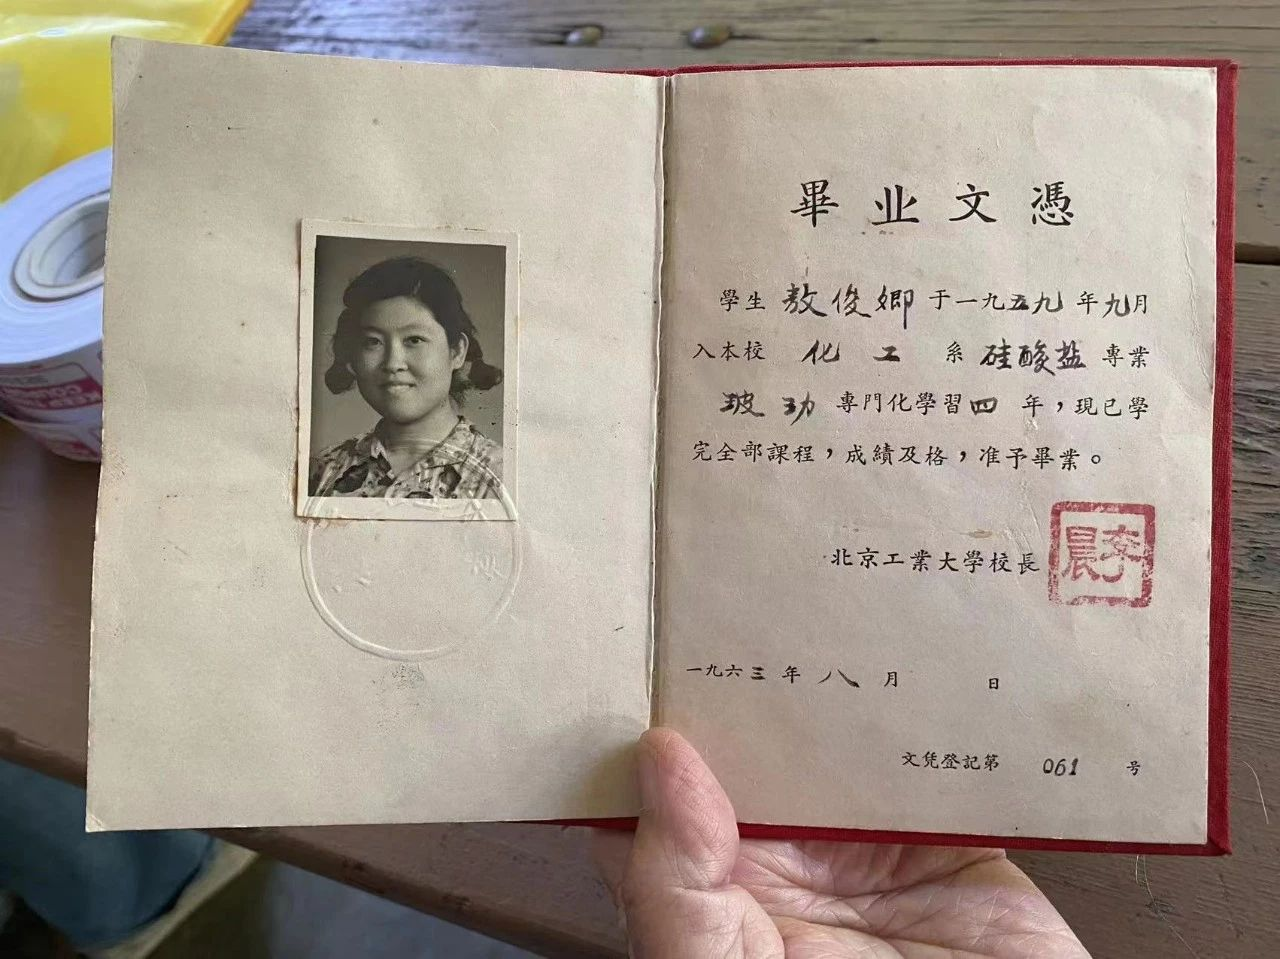 畢业文憑
學生 敖俊卿 于一九五九年九月
入本校 化工 系 硅酸盐 專業
玻功 專門化學習四年，現已學
完全部課程，成績及格，准予畢業。
北京工業大學校長
李晨
一九六三年八月 日
文凭登記第 061 号